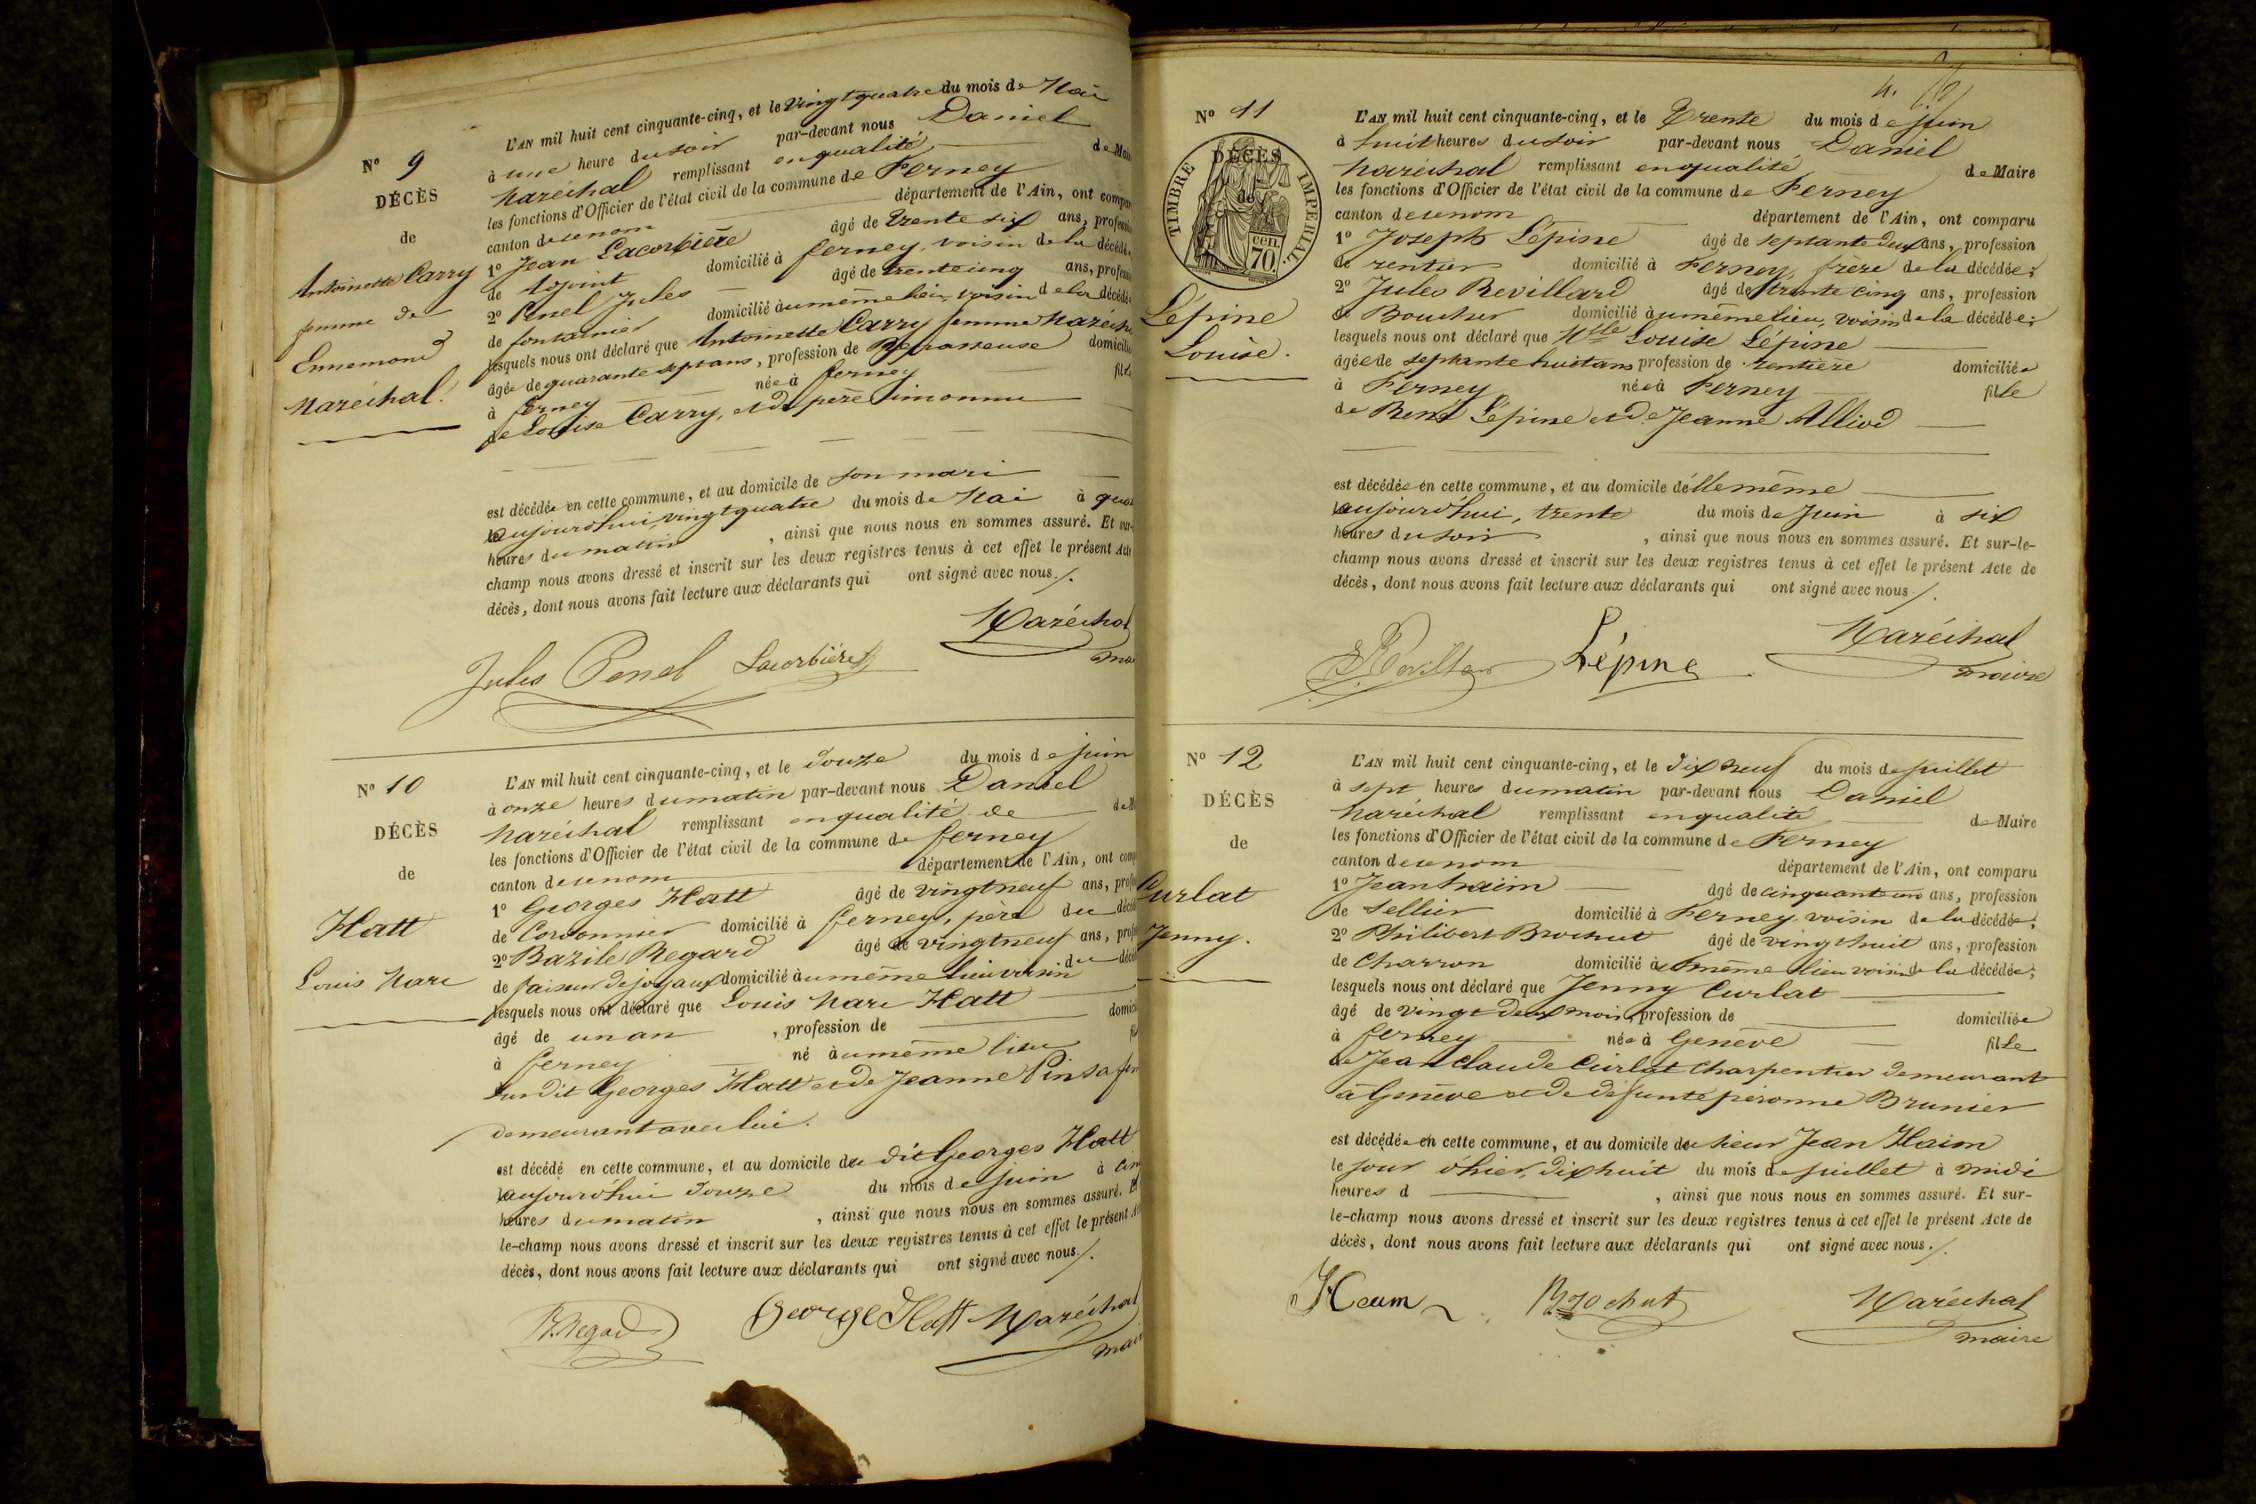 N° 9
DÉCÈS
de
Antoinette Carry
femme de
Ennemond
Maréchal.
L'AN mil huit cent cinquante-cinq, et le Vingt quatre du mois de Mai
à une heure du soir par-devant nous Daniel
Maréchal remplissant en qualité de Maire
les fonctions d'Officier de l'état civil de la commune de Ferney
canton de ce nom département de l'Ain, ont compar
1° Jean Lacorbière âgé de trente six ans, profession
de Adjoint domicilié à ferney, voisin de la décédée
2° Penel Jules âgé de trente cinq ans, profession
de fontainier domicilié au même lieu, voisin de la décédée
lesquels nous ont déclaré que Antoinette Carry femme Maréchal
âgée de quarante sept ans, profession de Repasseuse domiciliée
à ferney née à ferney fille
de Louise Carry, et de père inconnu
est décédée en cette commune, et au domicile de son mari
aujourd'hui, vingt quatre du mois de Mai à quat
heures du matin, ainsi que nous nous en sommes assuré. Et sur-
champ nous avons dressé et inscrit sur les deux registres tenus à cet effet le présent Acte
décès, dont nous avons fait lecture aux déclarants qui ont signé avec nous./.
Jules Penel Lacorbière Maréchal
mai
N° 10
DÉCÈS
de
Hatt
Louis Marc
L'AN mil huit cent cinquante-cinq, et le douze du mois de juin
à onze heures du matin par-devant nous Daniel
Maréchal remplissant en qualité de de M
les fonctions d'Officier de l'état civil de la commune de ferney
canton de ce nom département de l'Ain, ont comp
1° Georges Hatt âgé de vingt neuf ans, profes
de Cordonnier domicilié à ferney, père du décéd
2° Bazile Regard âgé de vingt neuf ans, prof
de faiseur de joyaux domicilié au même lieu voisin du décéd
lesquels nous ont déclaré que Louis Marc Hatt
âgé de un an, profession de domici
à ferney né au même lieu fi
du dit Georges Hatt et de Jeanne
demeurant avec lui.
est décédé en cette commune, et au domicile du dit Georges Hatt
aujourd'hui douze du mois de juin à cin
heures du matin, ainsi que nous nous en sommes assuré. E
le-champ nous avons dressé et inscrit sur les deux registres tenus à cet effet le présent A
décès, dont nous avons fait lecture aux déclarants qui ont signé avec nous./.
B. Regard George Hatt Maréchal
mair
N° 11
TIMBRE IMPÉRIAL.
DÉCÈS
de
70 cen.
Lépine
Louise.
L'AN mil huit cent cinquante-cinq, et le Trente du mois de juin
à huit heures du soir par-devant nous Daniel
Maréchal remplissant en qualité de Maire
les fonctions d'Officier de l'état civil de la commune de Ferney
canton de ce nom département de l'Ain, ont comparu
1° Joseph Lépine âgé de septante deux ans, profession
de rentier domicilié à Ferney, frère de la décédée;
2° Jules Revillard âgé de trente cinq ans, profession
de Boucher domicilié au même lieu, voisin de la décédée;
lesquels nous ont déclaré que Mlle Louise Lépine
âgée de septante huit ans profession de rentière domiciliée
à Ferney née à Ferney fille
de René Lépine et de Jeanne Alliod
est décédée en cette commune, et au domicile d'elle même
aujourd'hui, trente du mois de juin à six
heures du soir, ainsi que nous nous en sommes assuré. Et sur-le-
champ nous avons dressé et inscrit sur les deux registres tenus à cet effet le présent Acte de
décès, dont nous avons fait lecture aux déclarants qui ont signé avec nous./.
Lépine Maréchal
maire
N° 12
DÉCÈS
de
Curlat
Jenny.
L'AN mil huit cent cinquante-cinq, et le dix neuf du mois de juillet
à sept heures du matin par-devant nous Daniel
Maréchal remplissant en qualité de Maire
les fonctions d'Officier de l'état civil de la commune de Ferney
canton de ce nom département de l'Ain, ont comparu
1° Jean haim âgé de cinquante un ans, profession
de Sellier domicilié à Ferney voisin de la décédée;
2° Philibert Brochut âgé de vingt huit ans, profession
de Charron domicilié au même lieu voisin de la décédée;
lesquels nous ont déclaré que Jenny Curlat
âgé de vingt deux mois, profession de domiciliée
à ferney née à Genève fille
de Jean Claude Curlat Charpentier demeurant
à Genève et de défunte péronne Brunier
est décédée en cette commune, et au domicile du sieur Jean Haim
le jour d'hier, dix huit du mois de juillet à midi
heures d, ainsi que nous nous en sommes assuré. Et sur-
le-champ nous avons dressé et inscrit sur les deux registres tenus à cet effet le présent Acte de
décès, dont nous avons fait lecture aux déclarants qui ont signé avec nous./.
Brochut Maréchal
maire